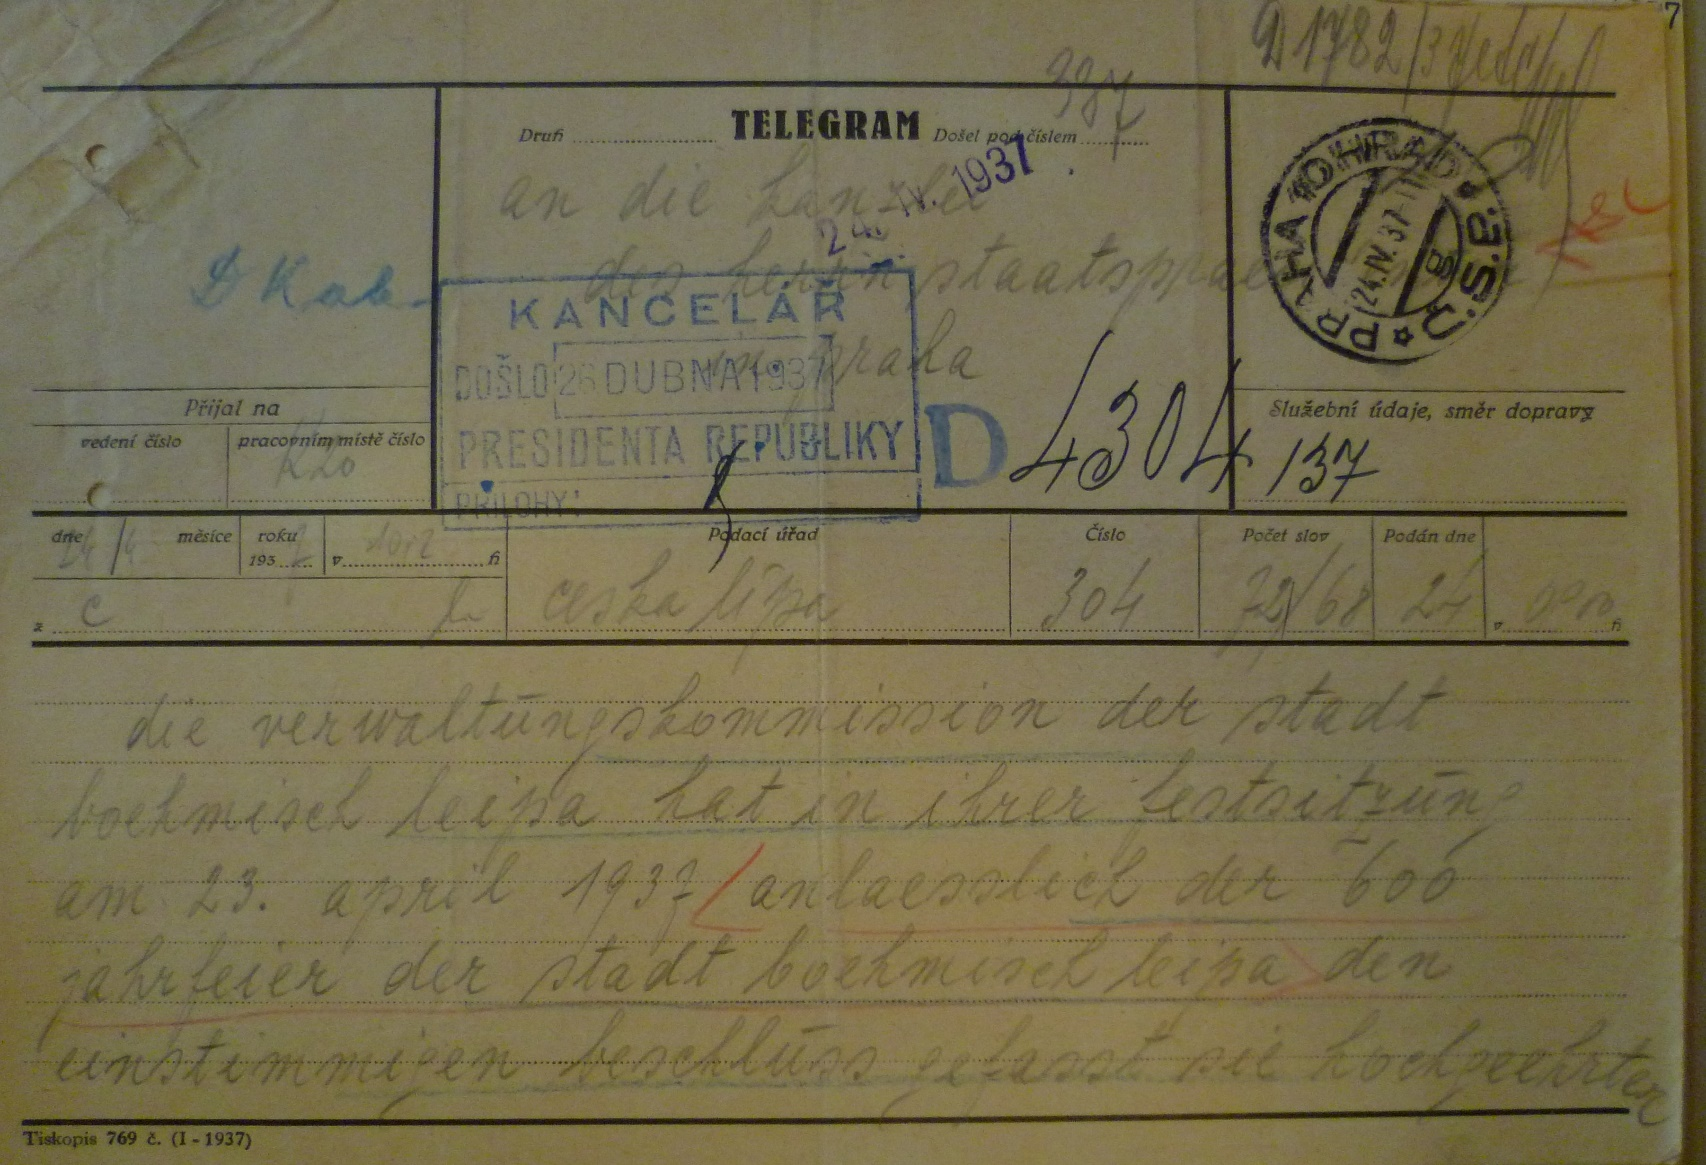 7
D 1782/37
987
Druh TELEGRAM Došel pod číslem
an die kanzlei
24. IV. 1937
des herrn staatsprae
in praha
D Kab.
PRAHA 10 HRAD
24.IV.37-11
Č.S.P.
KANCELÁŘ
DOŠLO 26 DUBNA 1937
PRESIDENTA REPUBLIKY
PŘÍLOHY:
D 4304/37
Přijal na
vedení číslo pracovním místě číslo
Služební údaje, směr dopravy
dne 24/4 měsíce roku 193 v h Podací úřad Číslo Počet slov Podán dne
z ceska lipa 304 72/68 24 v h
die verwaltungskommission der stadt
boehmisch leipa hat in ihrer festsitzung
am 23. april 1937 anlaesslich der 600
jahrfeier der stadt boehmisch leipa den
einstimmigen beschluss gefasst sie hochgeehrten
Tiskopis 769 č. (I - 1937)